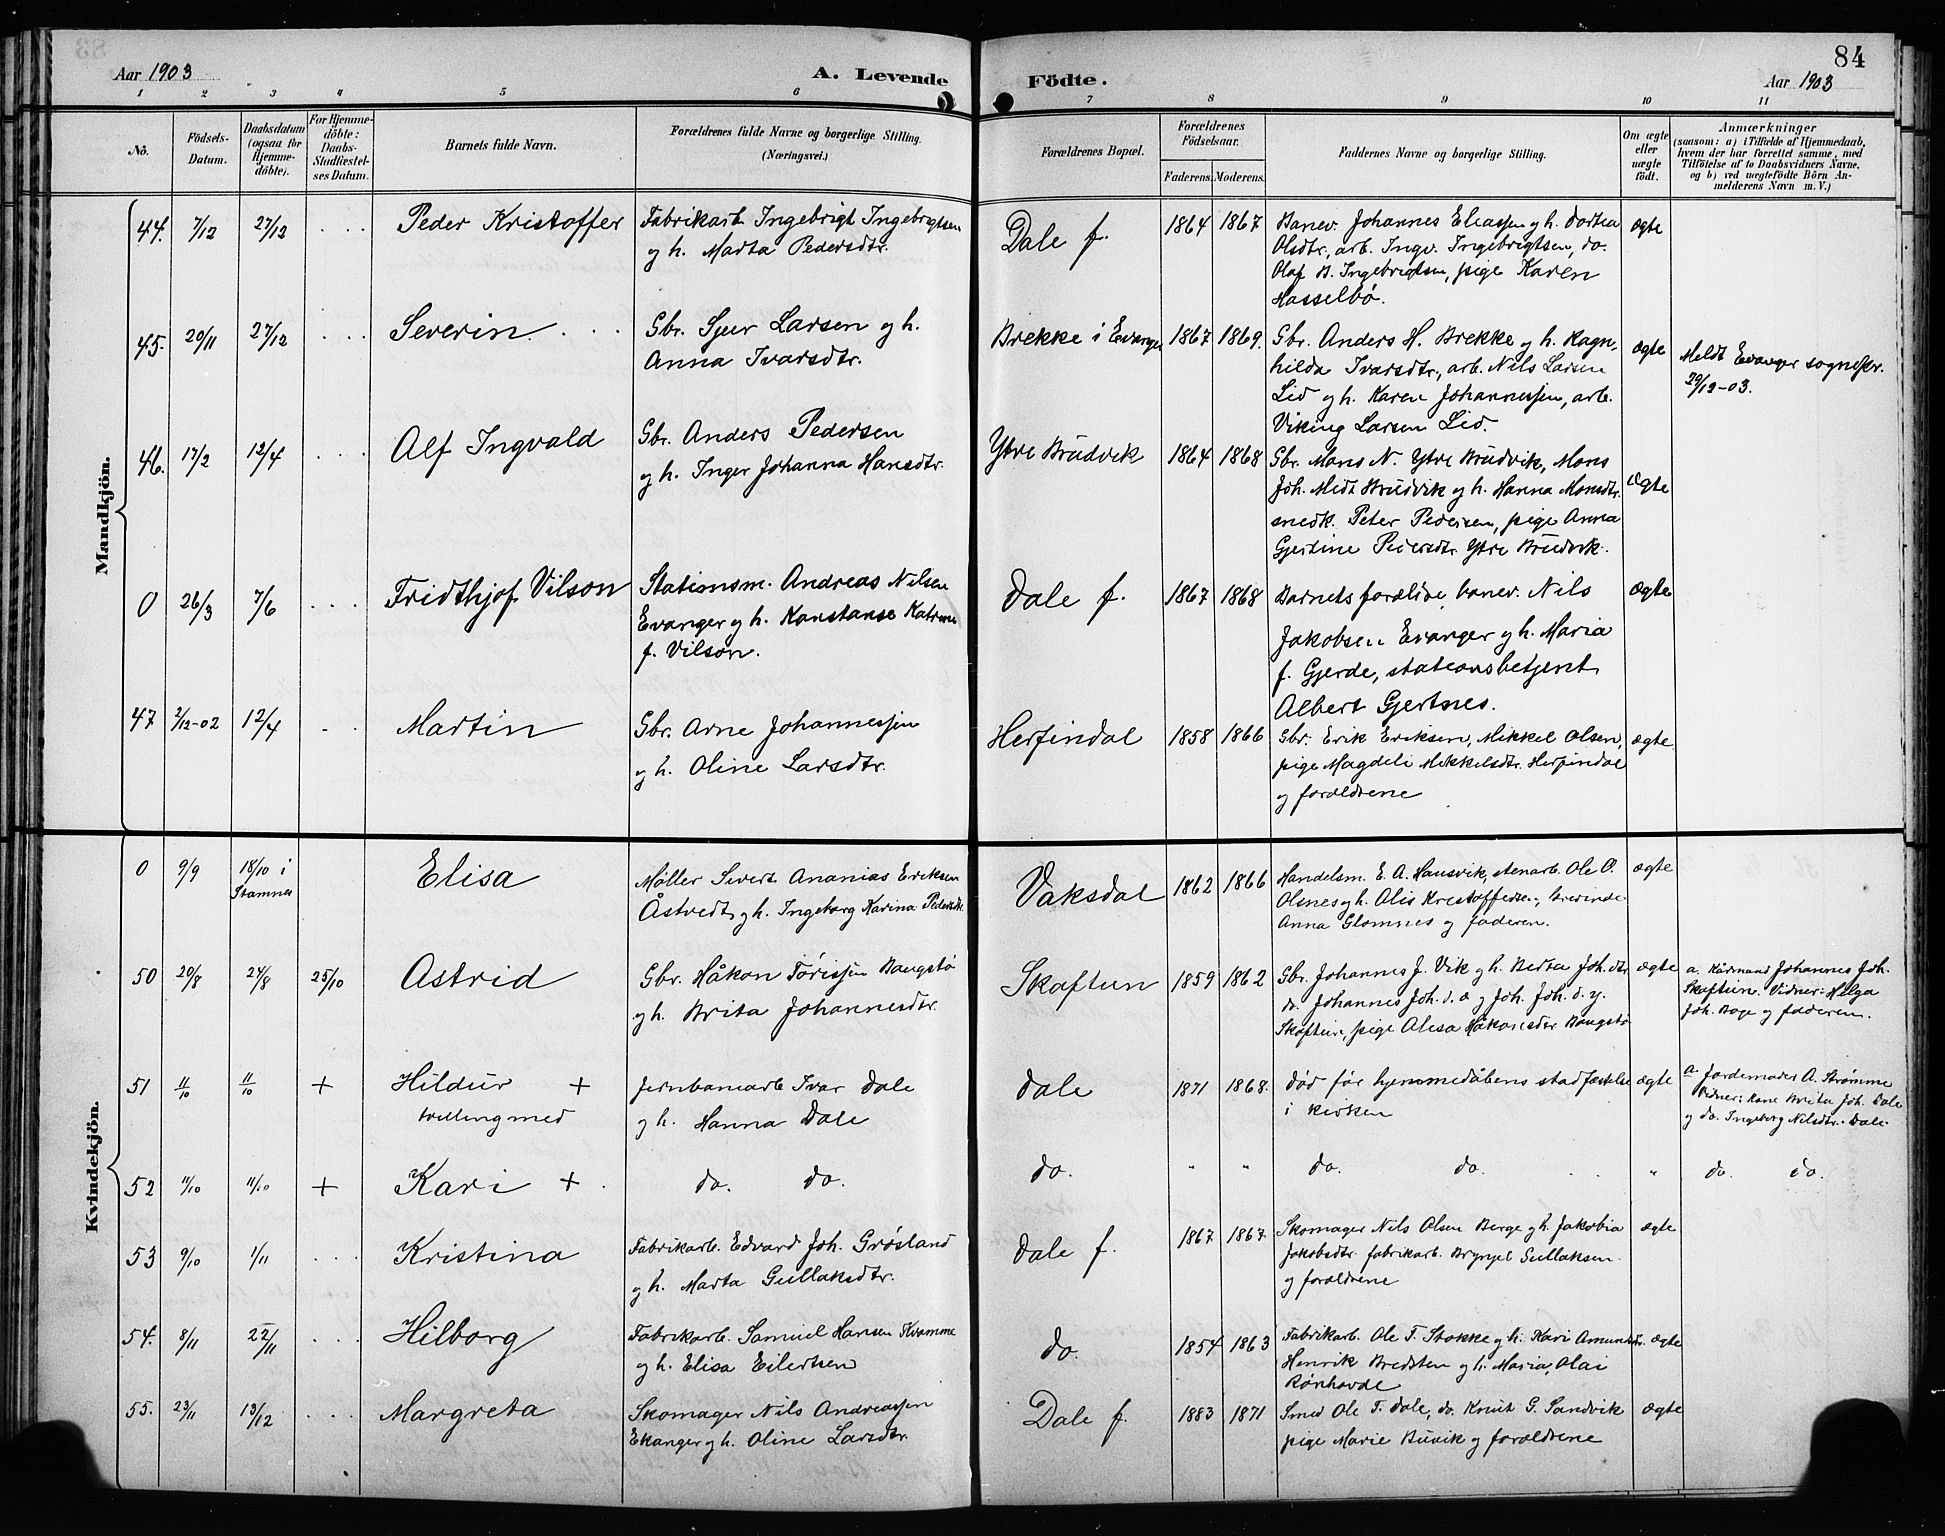 Aar 1903
A. Levende
Födte.
84
Aar 1903
1 2 3 4 5 6 7 8 9 10 11
No.
Födsels-
Datum.
Daabsdatum
(ogsaa for
Hjemme-
döbte).
For Hjemme-
döbte:
Daabs-
Stadfæstel-
ses Datum.
Barnets fulde Navn.
Forældrenes fulde Navne og borgerlige Stilling.
(Næringsvei.)
Forældrenes Bopæl.
Forældrenes
Födselsaar.
Faderens. Moderens.
Faddernes Navne og borgerlige Stilling.
Om ægte
eller
uægte
födt.
Anmærkninger
(saasom: a) i Tilfælde af Hjemmedaab,
hvem der har forrettet samme, med
Tilföielse af to Daabsvidners Navne,
og b) ved uægtefödte Börn An-
melderens Navn m. V.)
Mandkjön.
44. 7/12 27/12 . . .
Peder Kristoffer
Fabrikarb. Ingebrigt Ingebrigtsen
og h. Marta Pedersdtr.
Dale f.
1864 1867
Banev. Johannes Eliassen og h. Dortea
Olsdtr., arb. Ingv. Ingebrigtsen, do.
Olaf B. Ingebrigtsen, pige Karen
Hasselbö.
ægte
45. 20/11 27/12 . . .
Severin. . .
Gbr. Sjur Larsen og h.
Anna Ivarsdtr.
Brekke i Evanger
1867 1869.
Gbr. Anders H. Brekke og h. Ragn-
hilda Ivarsdtr., arb. Nils Larsen
Lid og h. Karen Johannessen, arb.
Viking Larsen Lid.
ægte
Meldt Evanger sognepr.
29/12-03.
46. 17/2 12/4 . . .
Alf Ingvald
Gbr. Anders Pedersen
og h. Inger Johanna Hansdtr.
Ytre Brudvik
1864 1868
Gbr. Mons N. Ytre Brudvik, Mons
Joh. Midt Brudvik og h. Hanna Monsdtr.
snedk. Peter Pedersen, pige Anna
Gjertine Pedersdtr. Ytre Brudvik.
ægte
0 26/3 7/6 . . .
Fridthjof Vilson
Stationsm. Andreas Nilsen
Evanger og h. Konstanse Katrine
f. Vilson.
Dale f.
1867 1868
Barnets forældre, banev. Nils
Jakobsen Evanger og h. Maria
f. Gjerde, stationsbetjent
Albert Gjertnes.
ægte
47 2/12-02 12/4 . .
Martin
Gbr. Arne Johannessen
og h. Oline Larsdtr.
Herfindal
1858 1866
Gbr. Erik Eriksen, Mikkel Olsen,
pige Magdeli Mikkelsdtr. Herfindal
og forældrene
ægte
Kvindekjön.
0 9/9 18/10 i
Stamnes
Elisa
Møller Sivert Ananias Eriksen
Åstvedt og h. Ingeborg Karina Pedersdtr.
Vaksdal
1862 1866
Handelsm. E. A. Hausvik, stenarb. Ole O.
Olsnes og h. Alis Kristoffersen,
Anna Glomnes og faderen.
ægte
50 20/8 24/8 25/10
Astrid
Gbr. Håkon Tørissen Baugstø
og h. Brita Johannesdtr.
Skaftun
1859 1862
Gbr. Johannes J. Vik og h. Berta Joh.dtr.
do. Johannes Joh. d. æ og Joh. Joh. d. y.
Skaftun, pige Alisa Håkonsdtr Baugstø
ægte
a. Kårmand Johannes Joh.
Skaftun. Vidner: Helga
Joh. Boge og faderen.
51 11/10 11/10 +
Hildur +
tvilling med
Jernbanearb Ivar Dale
og h. Hanna Dale
Dale
1871 1868.
død før hjemmedåbens stadfæstelse
i kirken
ægte
a. Jordemoder A. Strømme
Vidner: Kone Brita Joh. Dale
og do. Ingeborg Nilsdtr. Dale.
52 11/10 11/10 +
Kari + .
do. do.
do.
" "
do. do.
"
do. do.
53 9/10 1/11 . . .
Kristina
Fabrikarb. Edvard Joh. Grøsland
og h. Marta Gullaksdtr.
Dale f.
1867 1867.
Skomager Nils Olsen Berge og h. Jakobia
Jakobsdtr. fabrikarb. Brynjel Gullaksen
og forældrene
ægte
54. 8/11 22/11 . . .
Hilborg
Fabrikarb. Samuel Hansen Kvamme
og h. Elisa Eilertsen
do.
1854 1863
Fabrikarb. Ole T. Stokke og h. Kari Amundsdtr.
Henrik Bredsten og h. Maria, Olai
Rønhovde
ægte
55. 23/11 13/12 . . .
Margreta
Skomager Nils Andreassen
Ekanger og h. Oline Larsdtr.
Dale f.
1883 1871
Smed Ole T. Dale, do. Knut G. Sandvik
pige Marie Buvik og forældrene
ægte